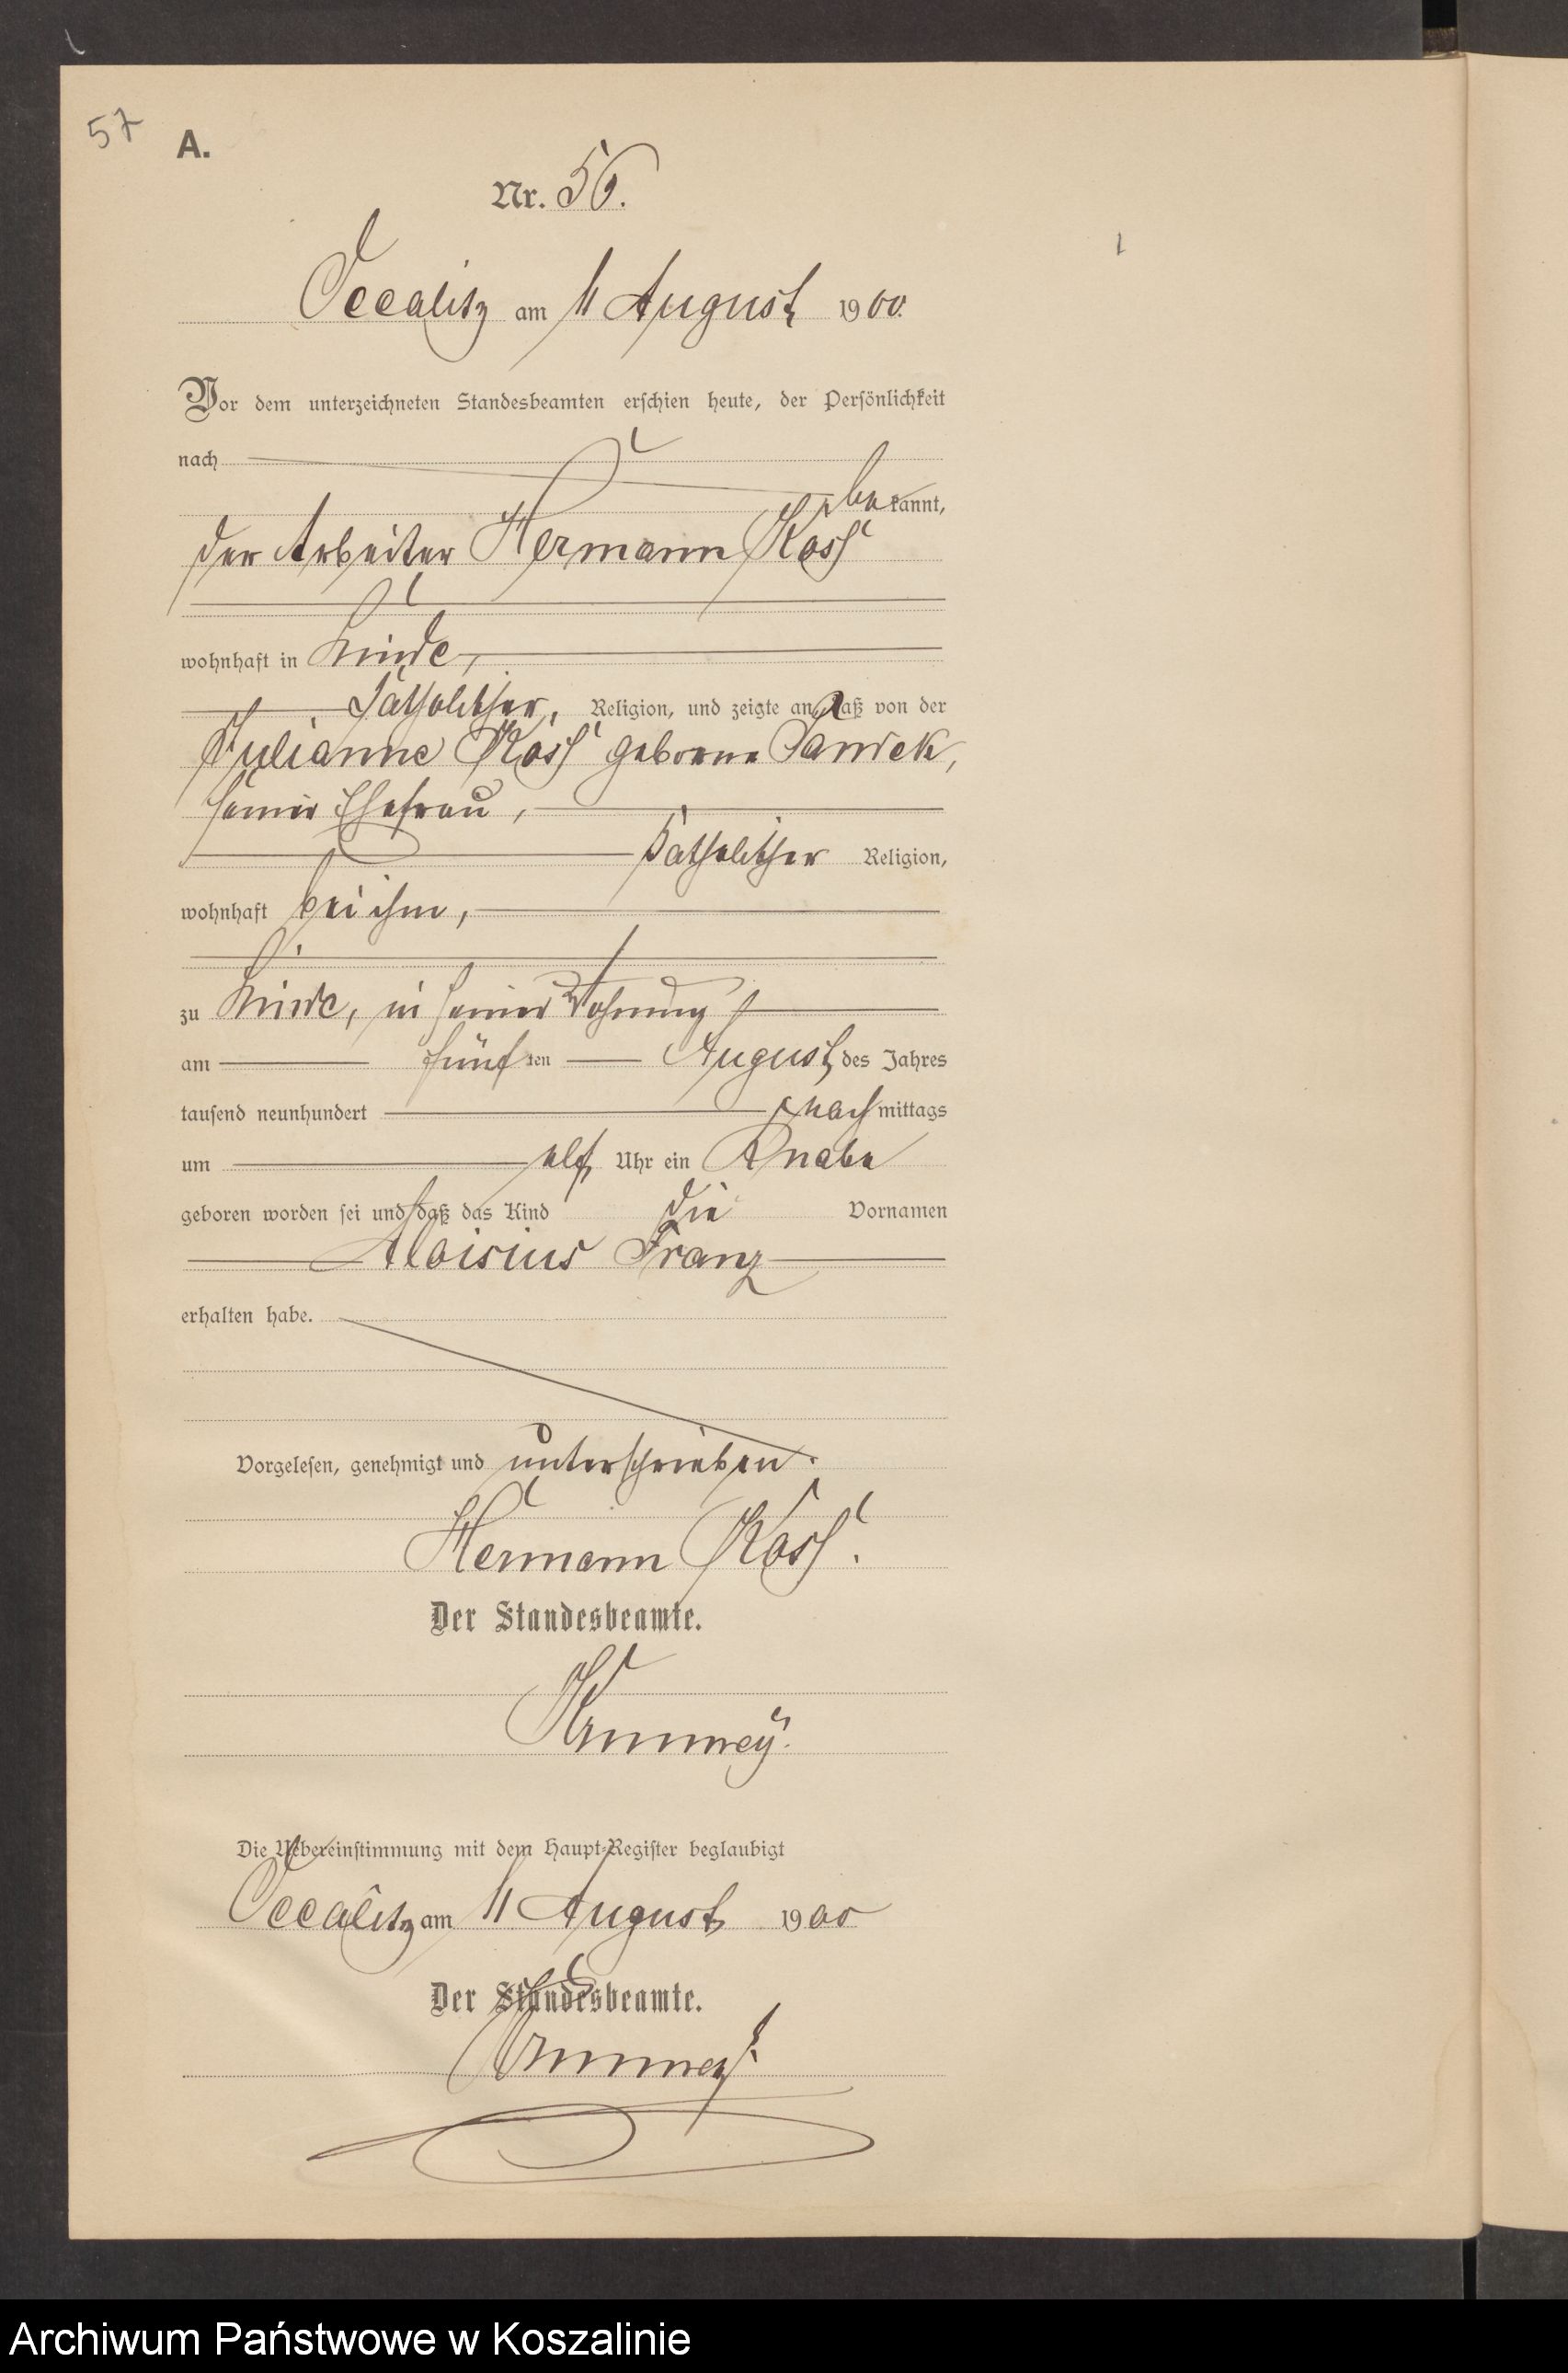 57
A.
Nr. 56.
Occalitz am 11 August 1900.
Vor dem unterzeichneten Standesbeamten erschien heute, der Persönlichkeit
nach
bekannt,
der Arbeiter Hermann Koss
wohnhaft in Linde,
katholischer Religion, und zeigte an, daß von der
Julianne Koss geborene
seiner Ehefrau,
katholischer Religion,
wohnhaft bei ihm,
zu Linde, in seiner Wohnung
am fünften August des Jahres
tausend neunhundert nachmittags
um elf Uhr ein Knabe
geboren worden sei und daß das Kind die Vornamen
Aloisius Franz
erhalten habe.
Vorgelesen, genehmigt und unterschrieben.
Hermann Koss.
Der Standesbeamte.
Die Uebereinstimmung mit dem Haupt-Register beglaubigt
Occalitz am 11 August 1900
Der Standesbeamte.
Archiwum Państwowe w Koszalinie